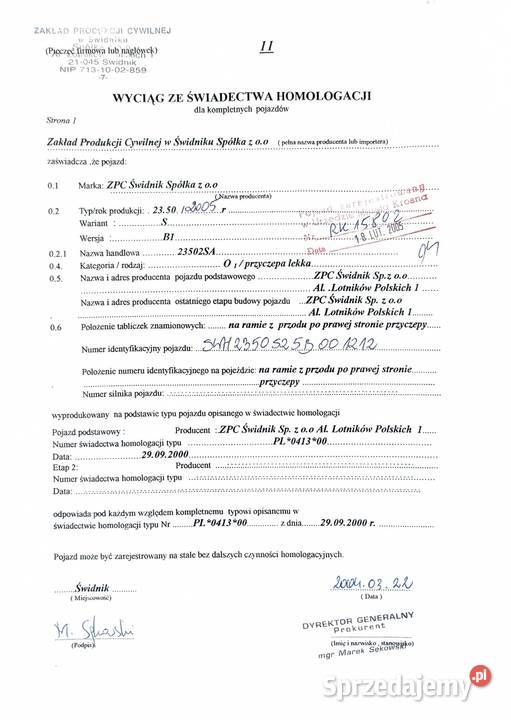 ZAKŁAD PRODUKCJI CYWILNEJ
w Świdniku
(Pieczęć firmowa lub nagłówek)
21-045 Świdnik
NIP 713-10-02-859
-7-
11
WYCIĄG ZE ŚWIADECTWA HOMOLOGACJI
dla kompletnych pojazdów
Strona 1
Zakład Produkcji Cywilnej w Świdniku Spółka z o.o ( pełna nazwa producenta lub importera)
zaświadcza ,że pojazd:
0.1 Marka: ZPC Świdnik Spółka z o.o
(Nazwa producenta)
0.2 Typ/rok produkcji: . 23.50 / 2005 r
Wariant : S
Wersja : B1
Pojazd zarejestrowano
w Urzędzie Miasta Krosna
Nr RK 15802
Data 18. LUT. 2005
0.2.1 Nazwa handlowa 23502SA
0.4. Kategoria / rodzaj: O 1 / przyczepa lekka
0.5. Nazwa i adres producenta pojazdu podstawowego ZPC Świdnik Sp.z o.o
Al. .Lotników Polskich 1
Nazwa i adres producenta ostatniego etapu budowy pojazdu ...ZPC Świdnik Sp. z o.o
Al. Lotników Polskich 1
0.6 Położenie tabliczek znamionowych: ....... na ramie z przodu po prawej stronie przyczepy
Numer identyfikacyjny pojazdu: SWH2350S25B001212
Położenie numeru identyfikacyjnego na pojeździe: na ramie z przodu po prawej stronie
przyczepy
Numer silnika pojazdu:
wyprodukowany na podstawie typu pojazdu opisanego w świadectwie homologacji
Pojazd podstawowy : Producent :.ZPC Świdnik Sp. z o.o Al. Lotników Polskich 1
Numer świadectwa homologacji typu PL*0413*00
Data: 29.09.2000
Etap 2: Producent
Numer świadectwa homologacji typu
Data:
odpowiada pod każdym względem kompletnemu typowi opisanemu w
świadectwie homologacji typu Nr PL*0413*00 z dnia 29.09.2000 r.
Pojazd może być zarejestrowany na stałe bez dalszych czynności homologacyjnych.
Świdnik
( Miejscowość)
2004.03.22
( Data )
(Podpis)
DYREKTOR GENERALNY
Prokurent
(Imię i nazwisko , stanowisko)
mgr Marek Sekowski
Sprzedajemy.pl